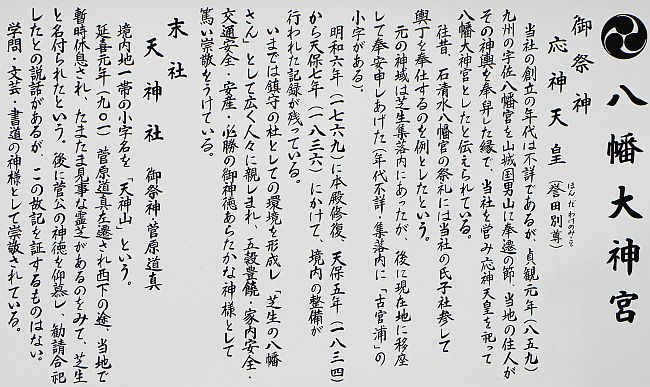 八幡大神宮
御祭神
応神天皇（誉田別尊）
ほんだわけのみこと
当社の創立の年代は不詳であるが、貞観元年（八五九）
九州の宇佐八幡宮を山城国男山に奉遷の節、当地の住人が
その神輿を奉舁した縁で、当社を営み応神天皇を祀って
八幡大神宮としたと伝えられている。
往昔、石清水八幡宮の祭礼には当社の氏子社参して
輿丁を奉仕するのを例としたという。
元の神域は芝生集落内にあったが、後に現在地に移座
して奉安申しあげた（年代不詳・集落内に「古宮浦」の
小字がある）。
明和六年（一七六九）に本殿修復、天保五年（一八三四）
から天保七年（一八三六）にかけて、境内の整備が
行われた記録が残っている。
いまでは鎮守の杜としての環境を形成し「芝生の八幡
さん」として広く人々に親しまれ、五穀豊饒・家内安全・
交通安全・安産・必勝の御神徳あらたかな神様として
篤い崇敬をうけている。
末社
天神社 御祭神・菅原道真
境内地一帯の小字名を「天神山」という。
延喜元年（九〇一）菅原道真左遷され西下の途、当地で
暫時休息され、たまたま見事な霊芝があるのをみて、芝生
と名付られたという。後に菅公の神徳を仰慕し、勧請合祀
したとの説話があるが、この故記を証するものはない。
学問・文芸・書道の神様として崇敬されている。